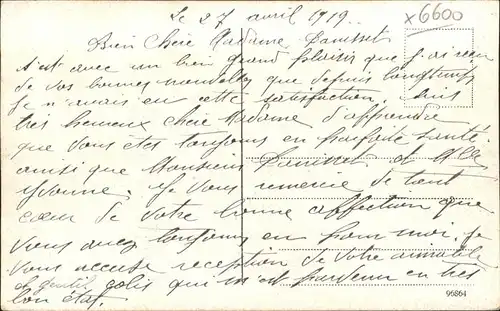 Le 27 avril 1919.
x6600
Bien Chère Madame Pausset
C'est avec un bien grand plaisir que j'ai reçu
de vos bonnes nouvelles que depuis longtemps
je n'avais eu cette satisfaction. suis
très heureux chère Madame d'apprendre
que vous êtes toujours en parfaite santé
ainsi que Monsieur Pausset et Mlle
Yvonne. Je vous remercie de tout
cœur de votre bonne affection que
vous avez toujours eu pour moi. je
vous accuse reception de votre aimable
et gentil colis qui m'est parvenu en très
bon état.
96864